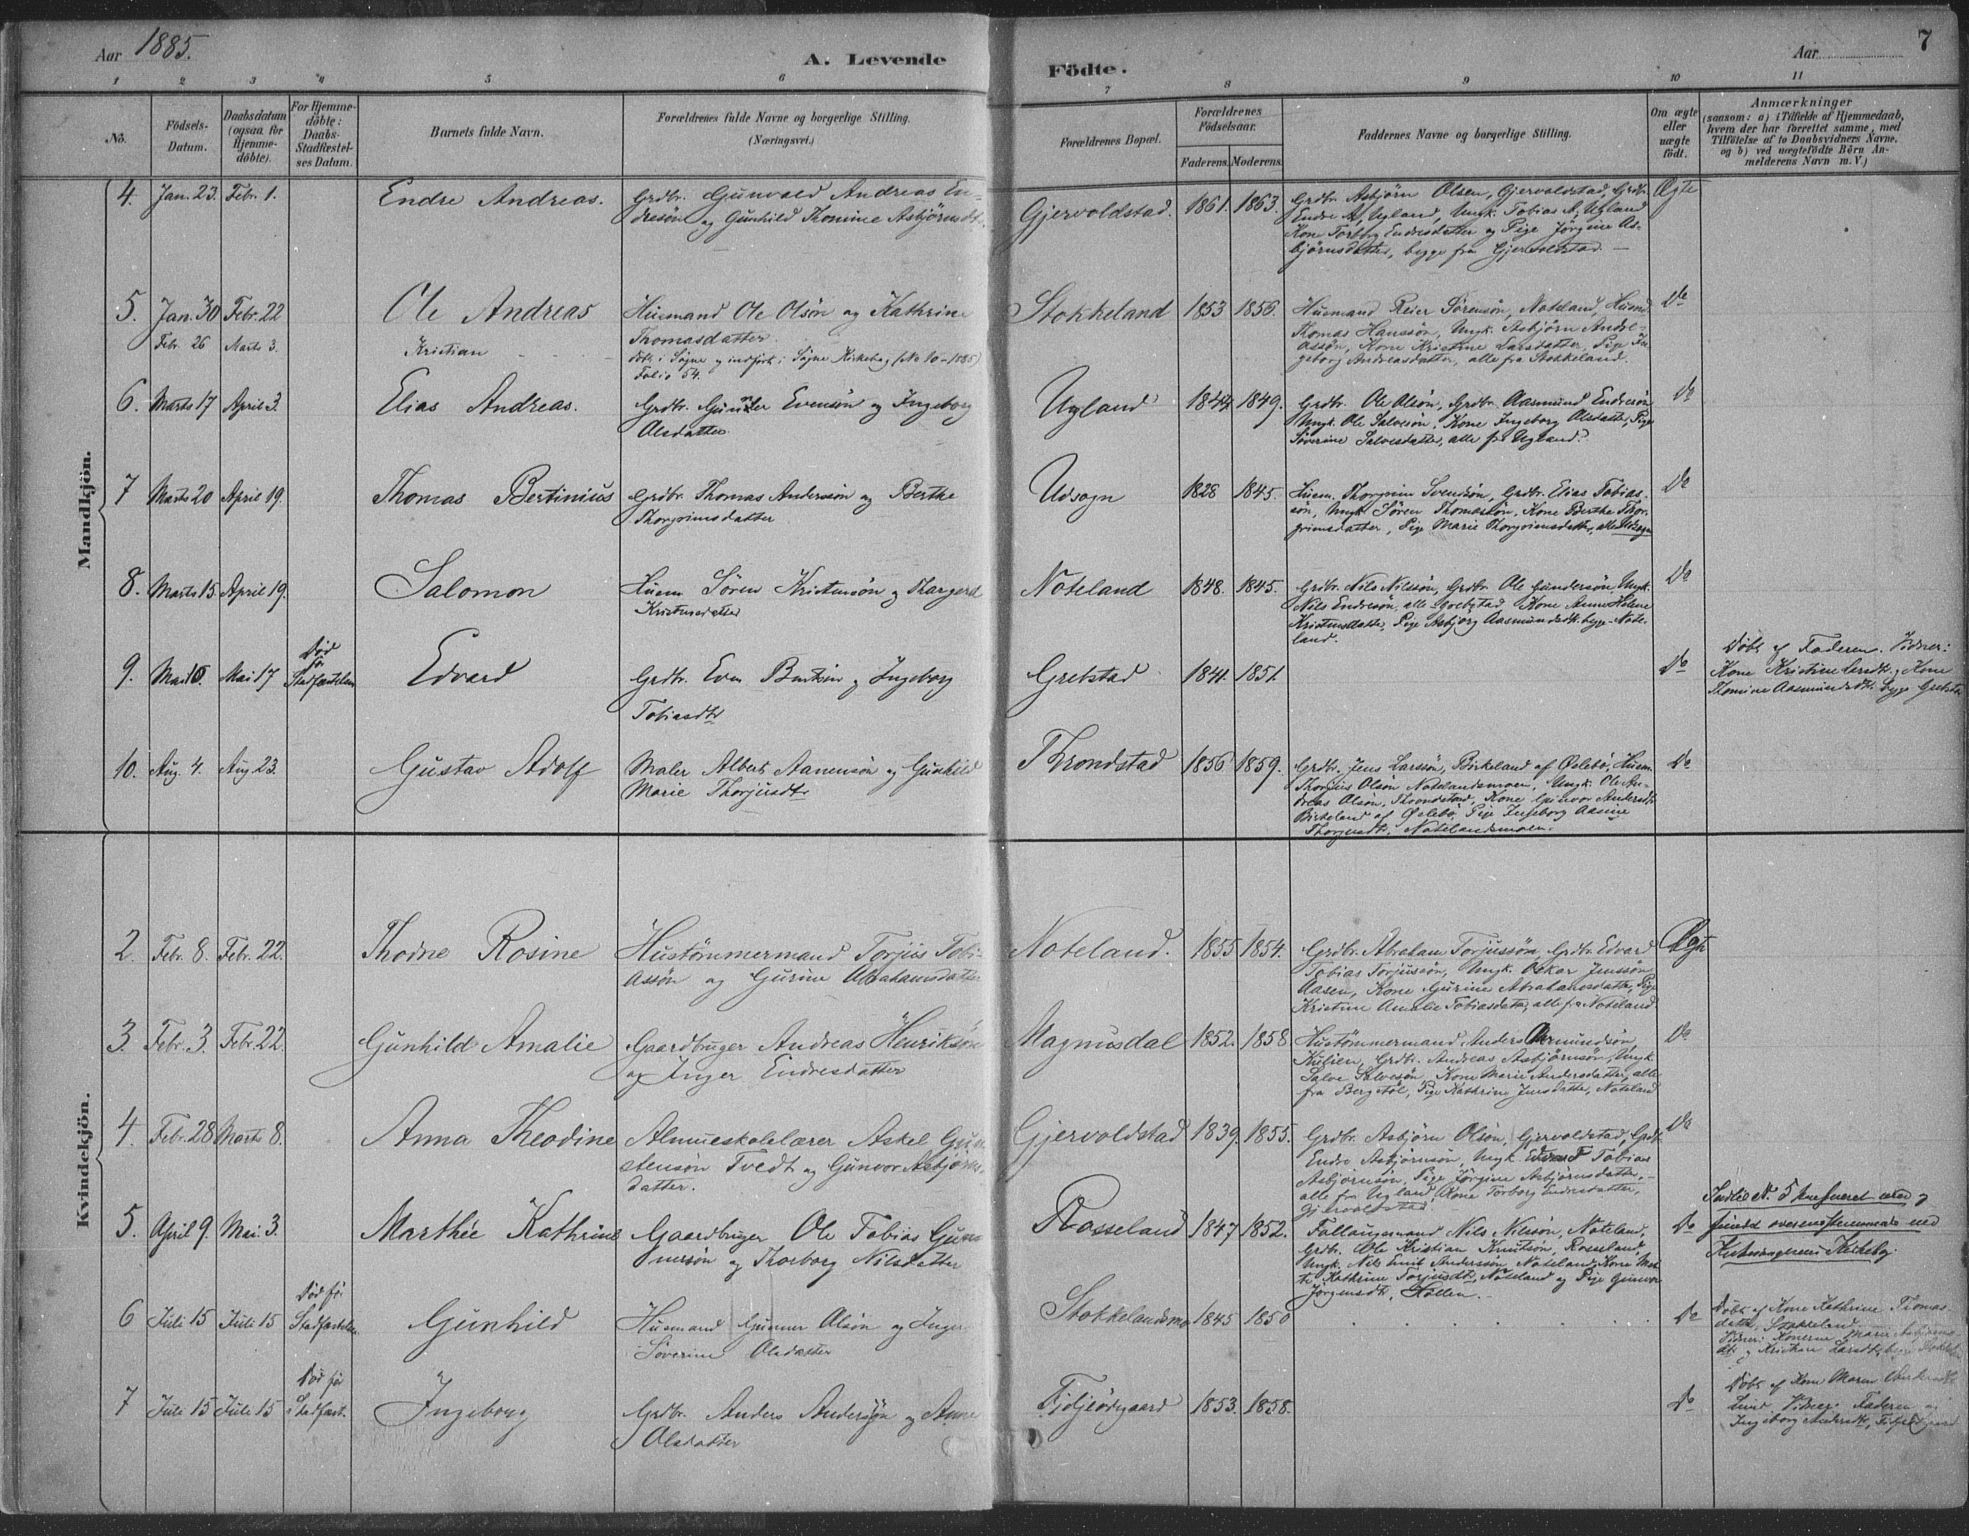 Aar 1885.
A. Levende
Födte.
Aar
7
1 2 3 4 5 6 7 8 9 10 11
No.
Födsels-
Datum.
Daabsdatum
(ogsaa for
Hjemme-
døbte).
For Hjemme-
døbte:
Daabs-
Stadfæstel-
ses Datum.
Barnets fulde Navn.
Forældrenes fulde Navne og borgerlige Stilling.
(Næringsvei.)
Forældrenes Bopæl.
Forældrenes
Födselsaar.
Faderens. Moderens.
Faddernes Navne og borgerlige Stilling.
Om ægte
eller
uægte
födt.
Anmærkninger
(saasom: a) i Tilfælde af Hjemmedaab,
hvem der har forrettet samme, med
Tilföielse af to Daabsvidners Navne,
og b) ved uægtefödte Börn An-
melderens Navn m. V.)
Mandkjön.
4. Jan. 23. Febr. 1. Endre Andreas.
Grdbr. Gunvald Andreas En-
dresön og Gunhild Thomine Asbjörnsdt.
Gjervoldstad. 1861. 1863.
Grdbr. Asbjörn Olsen, Gjervoldstad, Grdbr.
Endre A. Ugland, Ungk. Tobias A. Ugland
Kone Torborg Endresdatter og Pige Jörgine As-
björnsdatter, begge fra Gjervoldstad. —
Ægte
5. Jan. 30 Febr. 22 Ole Andreas
Husmand Ole Olsön og Kathrine
Thomasdatter.
Stokkeland 1853 1856.
Husmand Reier Sörensön, Noteland, Husmd
Thomas Hanssön, Ungk. Asbjörn Andre-
assön, Kone Kristine Larsdatter, Pige In-
geborg Andreasdatter, alle fra Stokkeland.
Do
Febr. 26 Marts 3. Kristian
döbt i Søgne og indført i Søgne Kirkebog (No 10 - 1885)
Folio 54.
6. Marts 17 April 3. Elias Andreas.
Grdbr. Gunder Evensön og Ingeborg
Olsdatter.
Ugland 1844 1849.
Grdbr. Ole Olsön, Grdbr. Aasmund Endresön
Ungk. Ole Salvesön, Kone Ingeborg Olsdatter, Pige
Söverine Salvesdatter, alle fra Ugland.
Do
7 Marts 20 April 19. Thomas Bertinius
Grdbr. Thomas Anderssön og Berthe
Thorgrimsdatter
Udsogn 1828 1845.
Husm. Thorgrim Svendsön, Grdbr. Elias Tobias-
sön, Ungk. Sören Thomassön, Kone Berthe Thor-
grimsdatter, Pige Marie Thorgrimsdatter, alle Udsogn
Do
8. Marts 15 April 19. Salomon
Husm. Sören Kristensön og Thargerd
Kristensdatter
Noteland 1848. 1845.
Grdbr. Nils Nilssön, Grdbr. Ole Gundersön, Ungk.
Nils Endresön, alle Kone Anne Helene
Kristensdatter, Pige Asbjørg Aasmundsdt. begge Note-
land.
Do
9. Mai 17 Död
før
Stadfæstelsen
Edvard
Grdbr. Even Berntsen og Ingeborg
Tobiasdtr
Gretstad 1841. 1851.
Do
Döbt af Faderen. Vidner:
Kone Kristine og Kone
Thomine Aasmundsdt. begge Gretstad
10. Aug. 4. Aug 23. Gustav Adolf
Maler Albert Aanensön og Gunhild
Marie Thorjusdtr
Throndstad 1856 1859.
Grdbr. Jens Larssön, Birkeland af Øslebö, Husm.
Thorjus Olsön Notelandsmoen, Ungk. Ole An-
dreas Olsön, Throndstad, Kone Gunvor Andersdt.
Birkeland af Øslebö, Pige Ingeborg Aasine
Thorjusdt. Notelandsmoen.
Do
Kvindekjön.
2. Febr. 8. Febr. 22. Thodne Rosine
Hustömmermand Torjus Tobi-
assön og Gurine Abrahamsdatter
Noteland. 1855 1854.
Grdbr. Abraham Torjussön, Grdbr. Edvard
Tobias Torjussön, Ungk. Oskar Jenssön
Aasen, Kone Gurine Abrahamsdatter, Pige
Kristine Amalie Tobiasdatter, alle fra Noteland
Ægte
3. Febr. 3. Febr. 22. Gunhild Amalie
Gaardbruger Andreas Henriksön
og Inger Endresdatter
Magnusdal 1852. 1858
Hustömmermand Anders
Kulien, Grdbr. Andreas Asbjörnsön, Ungk
Salve Salvesön, Kone Marie Andersdatter, alle
fra Bergstöl, Pige Kathrine Jensdatter, Noteland
Do
4. Febr. 28 Marts 8. Anna Theodine
Almueskolelærer Askel Gun-
stensön Tvedt og Gunvor Asbjörns-
datter.
Gjervoldstad 1839. 1855.
Grdbr. Asbjörn Olsön, Gjervoldstad, Grdb.
Endre Asbjörnsön, Ungk Tobias
Asbjörnsön, Pige Jörgine Asbjörnsdatter,
alle fra Ugland, Kone Torborg Endresdatter,
Gjervoldstad
Do
5. April 9. Mai 3. Marthe Kathrine
Gaardbruger Ole Tobias Gun-
nersön og Thorborg Nilsdatter
Rosseland 1847 1852.
Nils Nilssön, Noteland,
Grdbr. Ole Kristian Knutsön, Rosseland,
Ungk. Nils Emil Anderssön Noteland, Kone Mar-
te Kathrine Torjusdt. Noteland og Pige Gunvor
Jörgensdt. Hollen. -
Do
Indtil No. 5 konfereret med og
fundet overensstemmende med
Kirkebog
6 Juli 15 Juli 15 Död før
Stadfæstelsen
Gunhild
Husmand Gunner Olsön og Inger
Söverine Olsdatter
Stokkelandsmo 1845 1850
Do
Döbt af Kone Kathrine Thomas-
datter, Stokkeland.
Vidner: Konerne Marie Asbjörns-
dt. og Kristine Larsdt. begge Stokkeland
7 Juli 15 Juli 15 Död før
Stadfæst.
Ingeborg
Grdbr. Anders Andersön og Anne
Olsdatter
Fidjeödegaard 1853. 1858.
Do
Döbt af Kone Maren
Lund Vidner: Faderen og
Ingeborg Andersdt., Fidjeödegaard